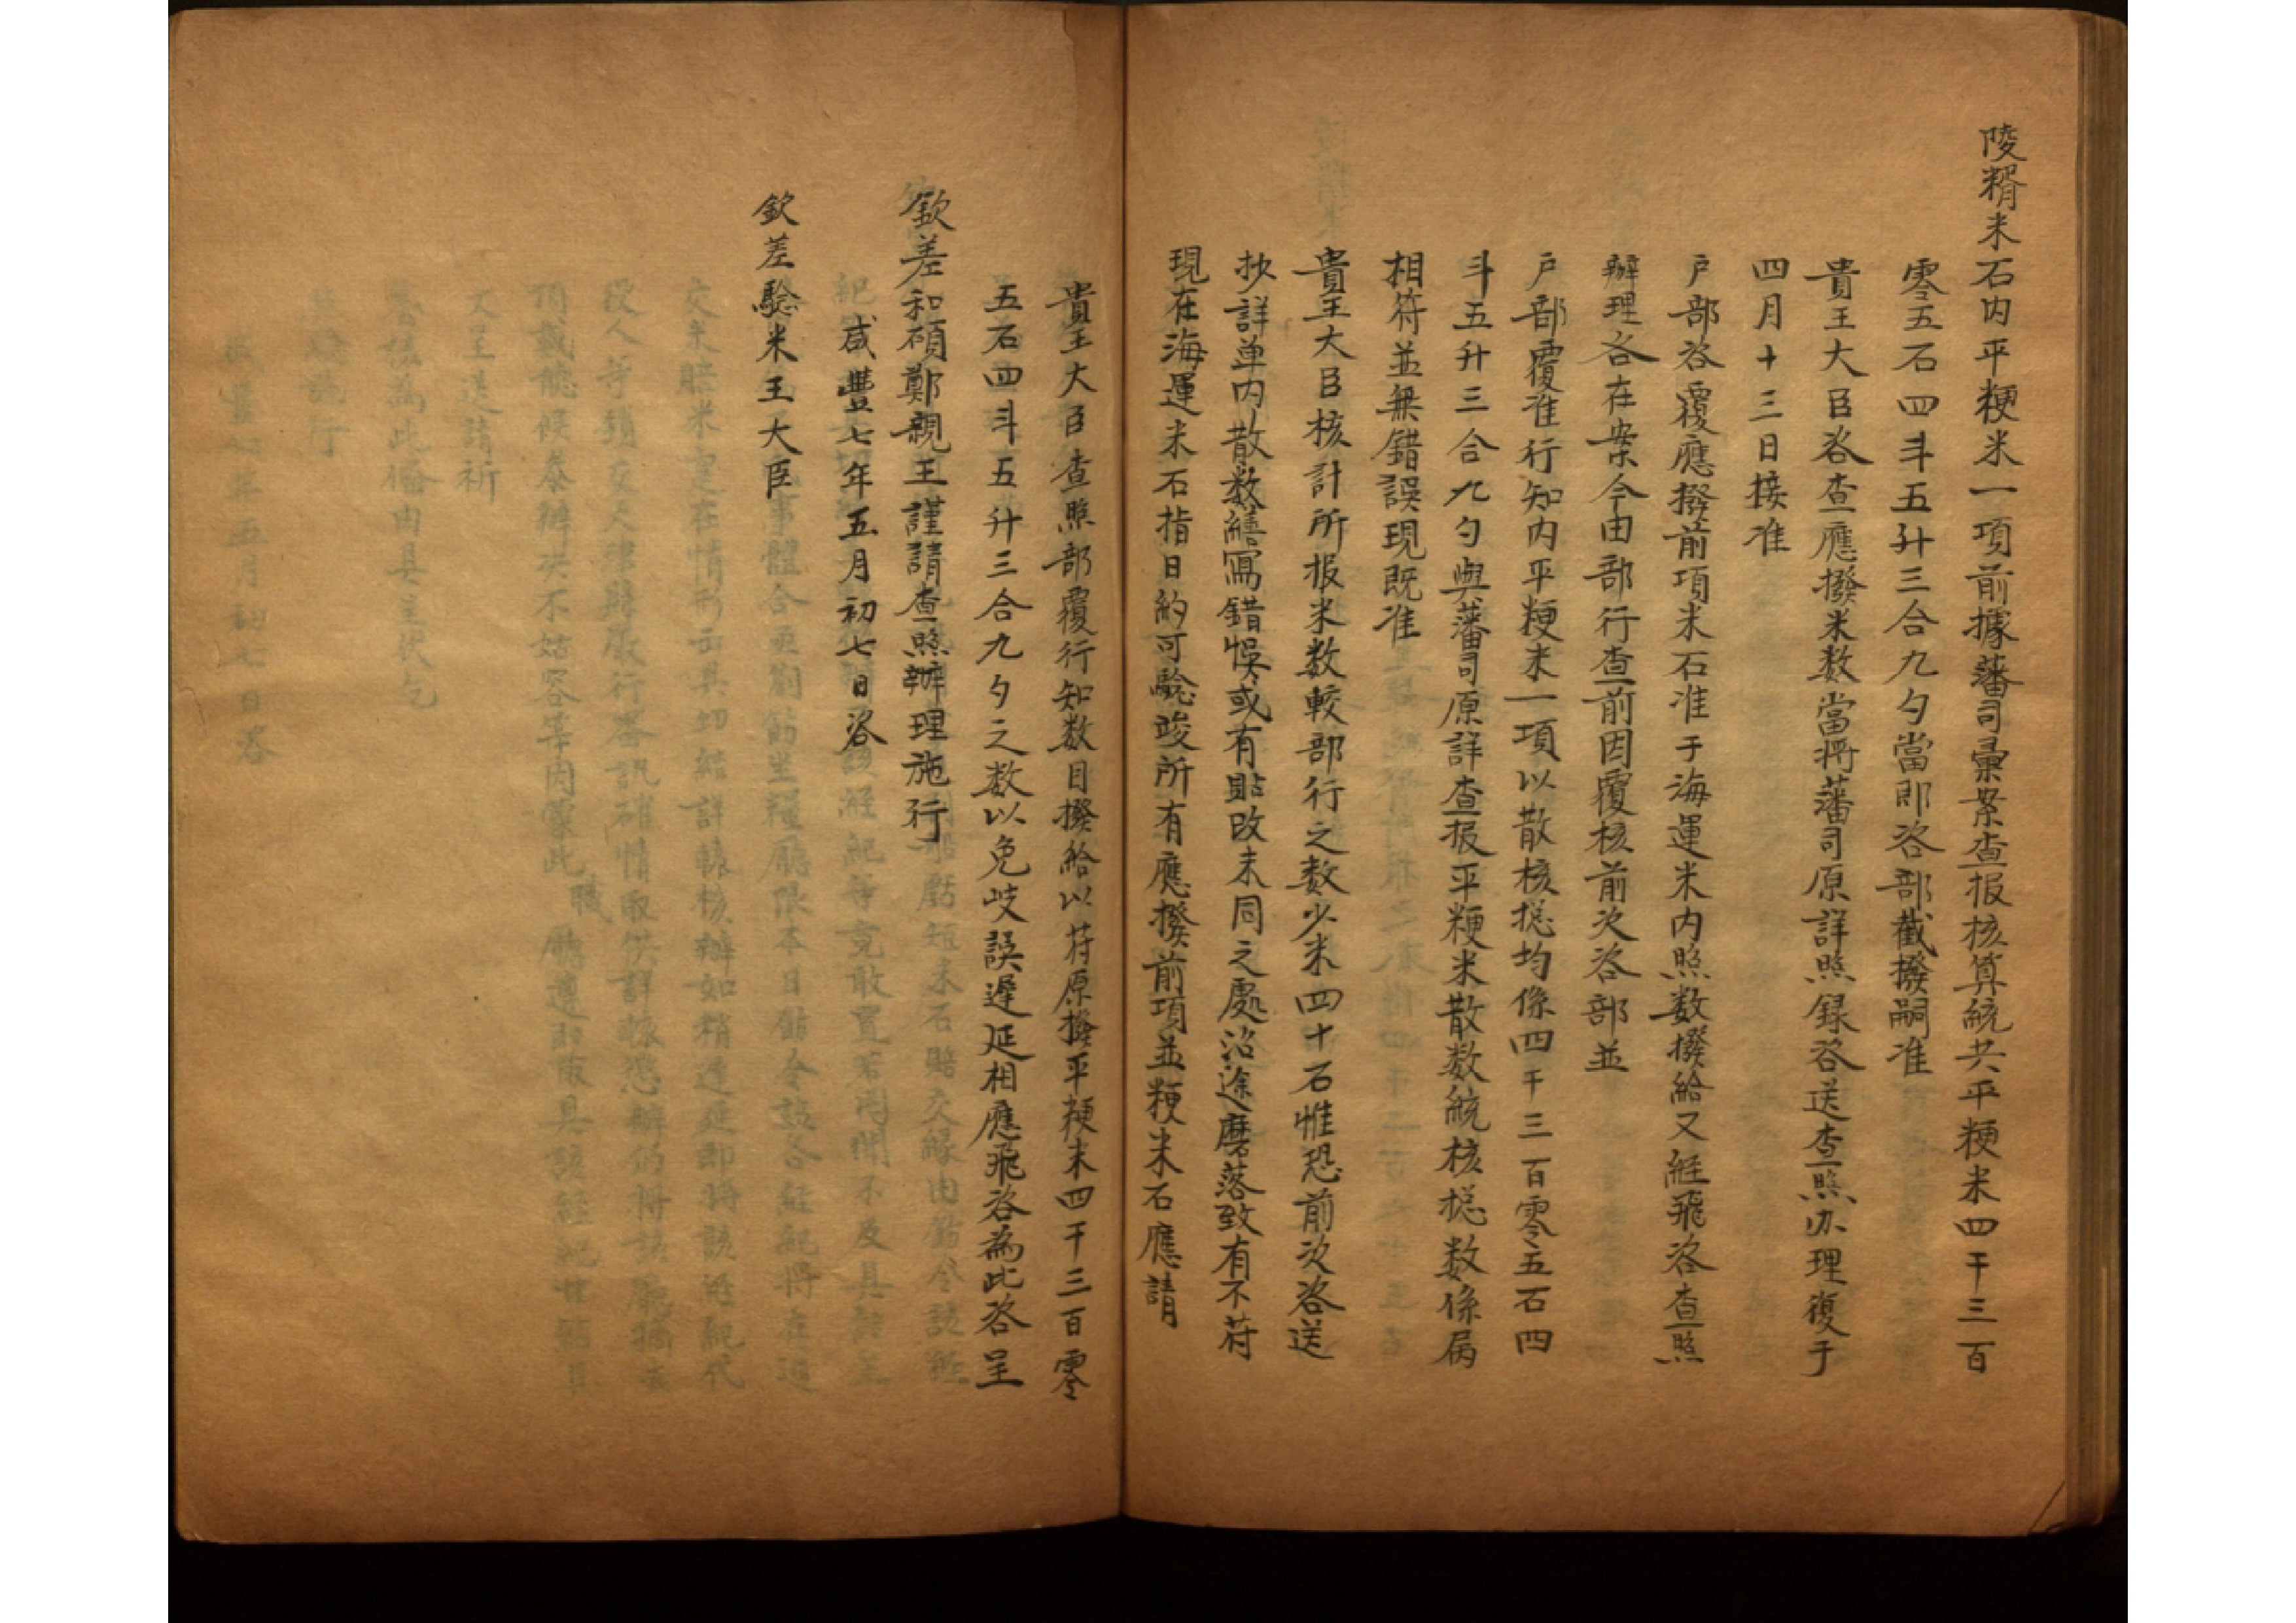 陵糈米石内平粳米一項前據藩司彙案查报核算統共平粳米四千三百
零五石四斗五升三合九勺當即咨部截撥嗣准
貴王大臣咨查應撥米数當將藩司原詳照録咨送查照办理復于
四月十三日接准
户部咨覆應撥前項米石准于海運米内照数撥給又經飛咨查照
辦理各在案今由部行查前因覆核前次咨部並
户部覆准行知内平粳米一項以散核捴均係四千三百零五石四
斗五升三合九勺與藩司原詳查报平粳米散数統核捴数係属
相符並無錯誤現既准
貴王大臣核計所报米数較部行之数少米四十石惟恐前次咨送
抄詳单内散数繕寫錯悞或有貼改未同之處沿途磨落致有不符
現在海運米石指日約可驗竣所有應撥前項並粳米石應請
貴王大臣查照部覆行知数目撥給以符原撥平粳米四千三百零
五石四斗五升三合九勺之数以免歧誤遲延相應飛咨為此咨呈
欽差和碩鄭親王謹請查照辦理施行
咸豐七年五月初七日咨
欽差驗米王大臣